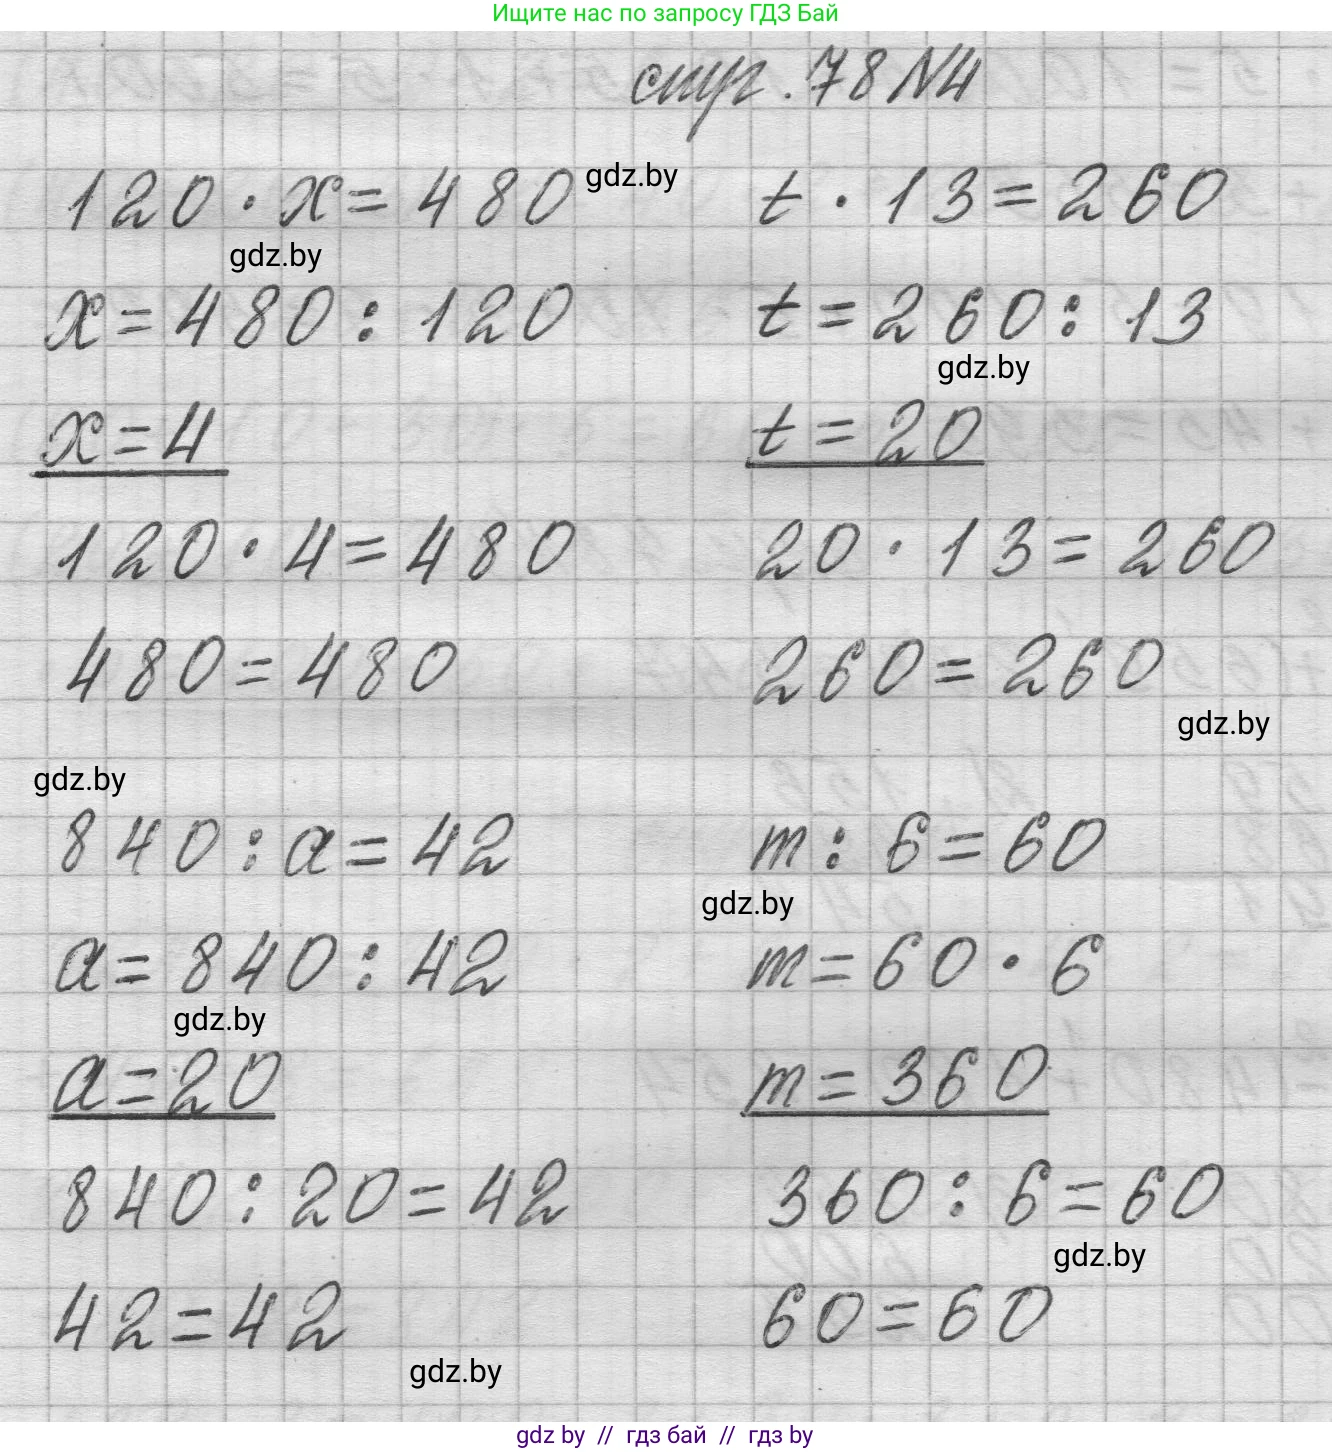 Ищите нас по запросу ГДЗ Бай
стр. 78 №4
120 · x = 480
gdz.by
gdz.by
x = 480 : 120
x = 4
120 · 4 = 480
480 = 480
t · 13 = 260
t = 260 : 13
gdz.by
t = 20
20 · 13 = 260
260 = 260
gdz.by
gdz.by
840 : a = 42
a = 840 : 42
gdz.by
a = 20
840 : 20 = 42
42 = 42
gdz.by
m : 6 = 60
gdz.by
m = 60 · 6
m = 360
360 : 6 = 60
gdz.by
60 = 60
gdz by // гдз бай // гдз by